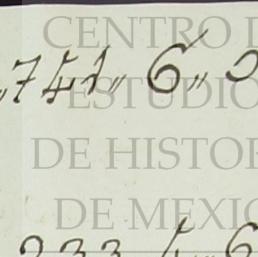 CENTRO D
„741„ 6„ 
ESTUDIO
DE HISTOR
DE MEXIC
233 4„6